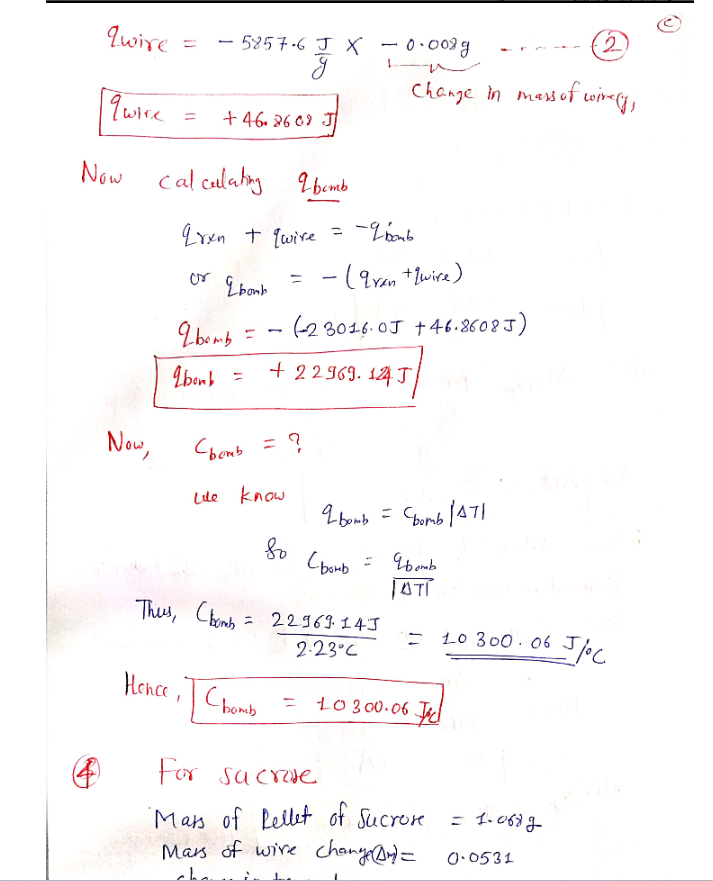 c
qwire = - 5857.6 J/g X - 0.008g ------ 2
change in mass of wire
qwire = + 46.8608 J
Now calculating qbomb
qrxn + qwire = -qbomb
or qbomb = - (qrxn + qwire)
qbomb = - (-23016.0J + 46.8608J)
qbomb = + 22969.14 J
Now, Cbomb = ?
We know
qbomb = Cbomb |ΔT|
So Cbomb = qbomb / |ΔT|
Thus, Cbomb = 22969.14J / 2.23°C = 10300.06 J/°C
Hence, Cbomb = 10300.06 J/°C
4 For sucrose
Mass of Pellet of Sucrose = 1.068g
Mass of wire change(Δm) = 0.0531